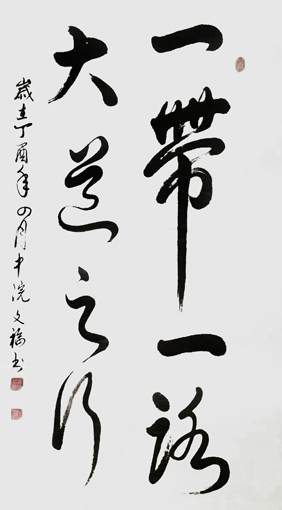 一帶一路
大道之行
歲在丁酉年四月中浣文福书